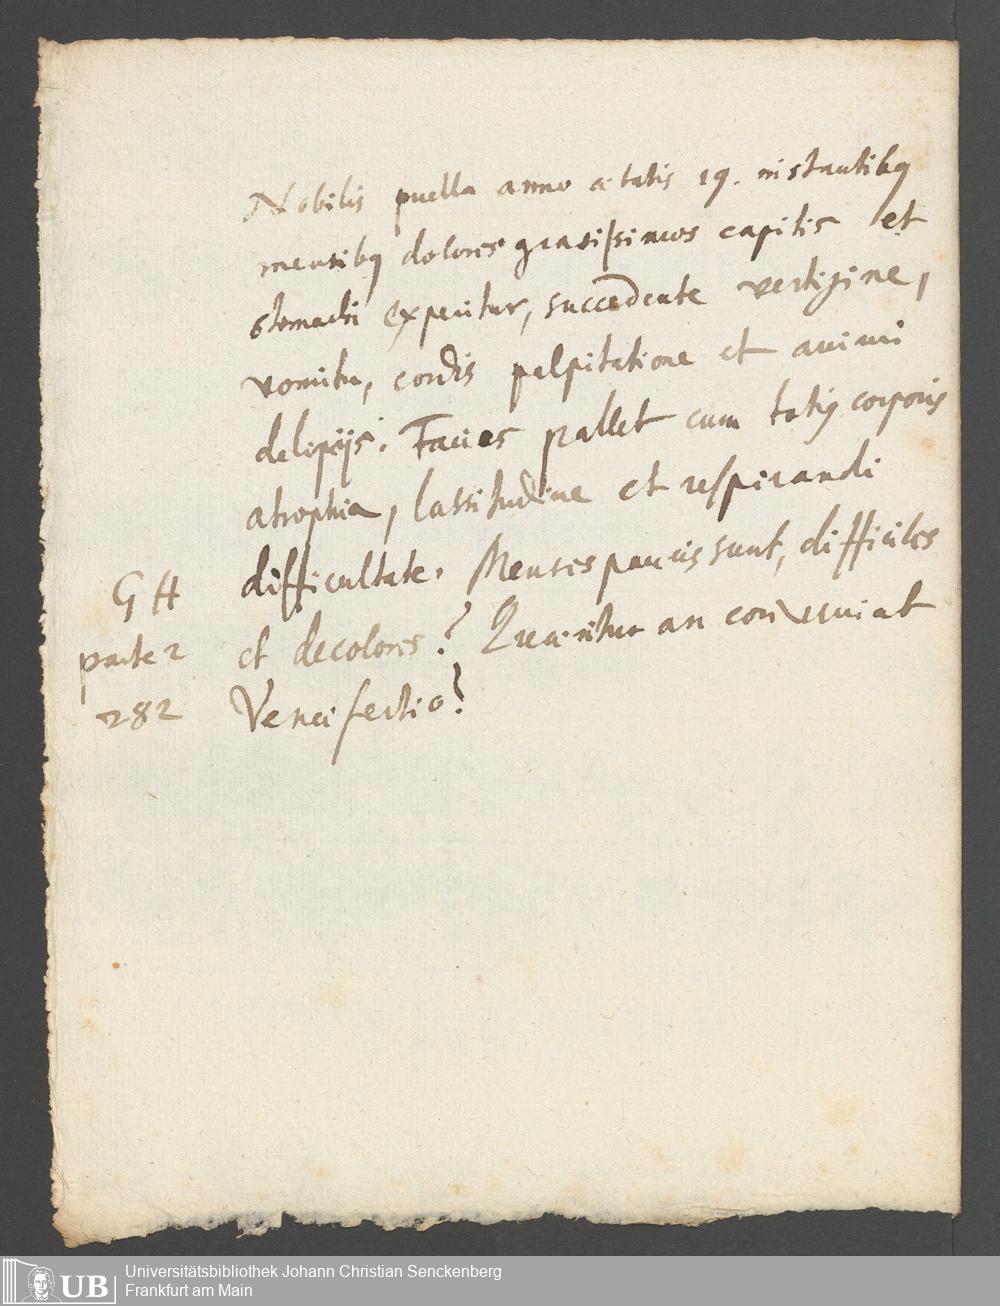 Nobilis puella anno ætatis 19. instantibꝰ
mensibꝰ dolores grauissimos capitis et
stomachi experitur, succedente vertigine,
vomitu, cordis palpitatione et animi
deliquijs. Facies pallet cum totiꝰ corporis
atrophia, lassitudine et respirandi
difficultate. Menses paucis sunt, difficiles
et decolores? Quæritur an conveniat
Venæ sectio?
G H
parte 2
282
UB
Universitätsbibliothek Johann Christian Senckenberg
Frankfurt am Main